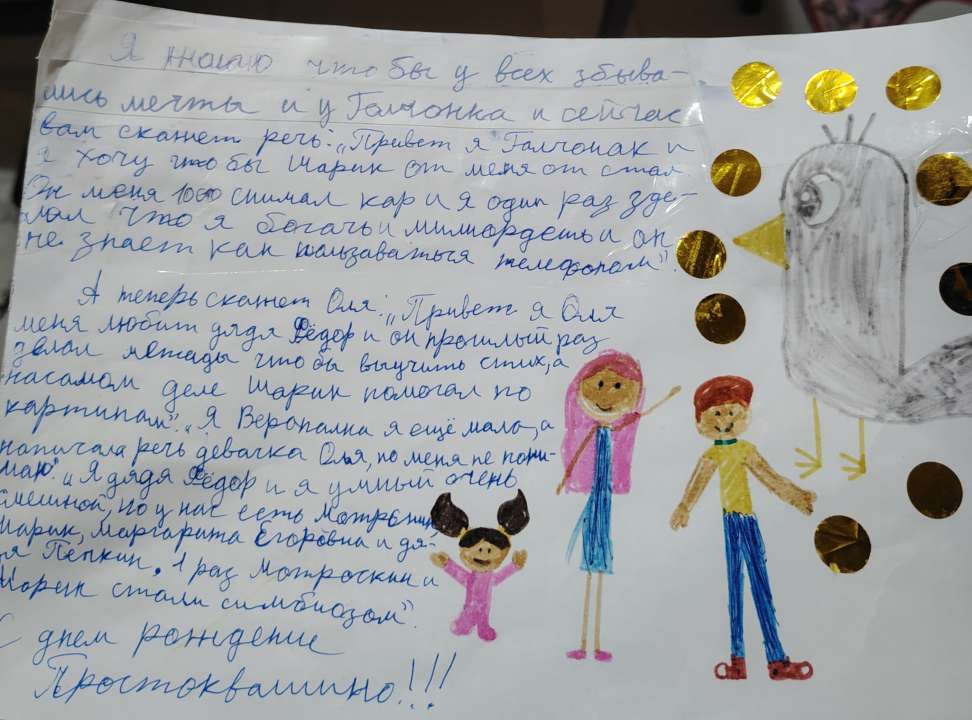 Я жилаю что бы у всех збыва-
лись мечты и у Галчонка и сейчас
вам скажет речь: „Привет я Галчонак и
я хочу что бы Шарик от меня от стал
Он меня 1000 снимал кар и я один раз зде-
лал что я богач и милиордеть и он
не знает как пользаваться телефоном".
А теперь скажет Оля: „Привет я Оля
меня любит дядя Фёдор и он прошлый раз
делал метады что бы выучить стих, а
насамом деле Шарик помогал по
картинам". „Я Веропална я ещё мало, а
написала речь девачка Оля, но меня не пони-
маю". „Я дядя Фёдор и я умный очень
смешной, но у нас есть Матрыкин
Шарик, Маргарита Егоровна и дя-
дя Пепкин. 1 раз Матроскин и
Шарик стали симбиозом".
С днем рождение
Простоквашино!!!